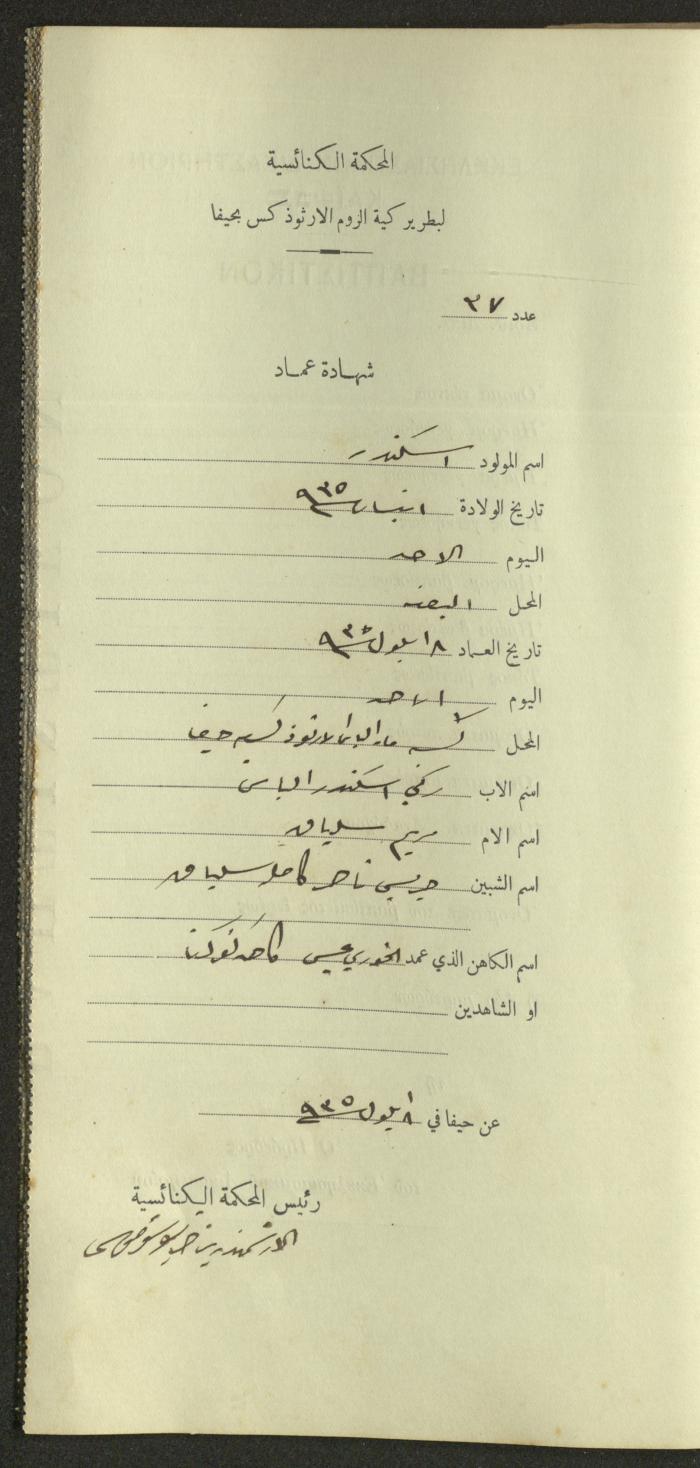 المحكمة الكنائسية
لبطريركية الروم الارثوذكس بحيفا
عدد ٣٧
شهادة عماد
اسم المولود اسكندر
تاريخ الولادة ١ نيسان ٩٣٥
اليوم الاحد
المحل
تاريخ العماد ٨ ايلول ٩٣٥
اليوم الاحد
المحل كنيسة مار الياس الارثوذكسيه حيفا
اسم الاب اسكندر الياس
اسم الام مريم
اسم الشبين جريس ناصر كامل
اسم الكاهن الذي عمد الخوري عيسى
او الشاهدين
عن حيفا في ٨ ايلول ٩٣٥
رئيس المحكمة الكنائسية
الارشمندريت